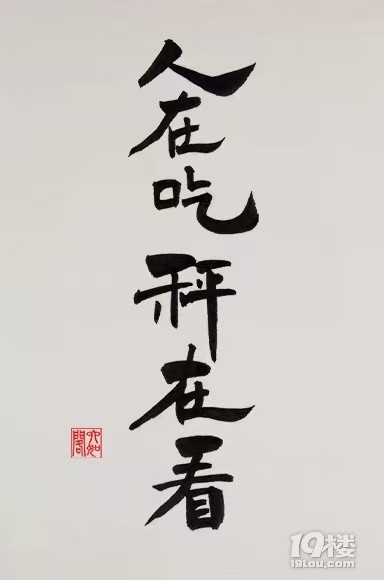 人在吃
秤在看
六如閣
19楼
19lou.com